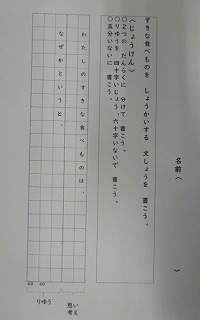 名前（　　　　　）
すきな食べものを　しょうかいする　文しょうを　書こう。
〈じょうけん〉
○２つの　だんらくに　分けて　書こう。
○りゆうを　四十字いじょう、六十字いないで　書こう。
○五分いないに　書こう。
わたしのすきな食べものは、
なぜかというと、
60 40
りゆう
思い
考え